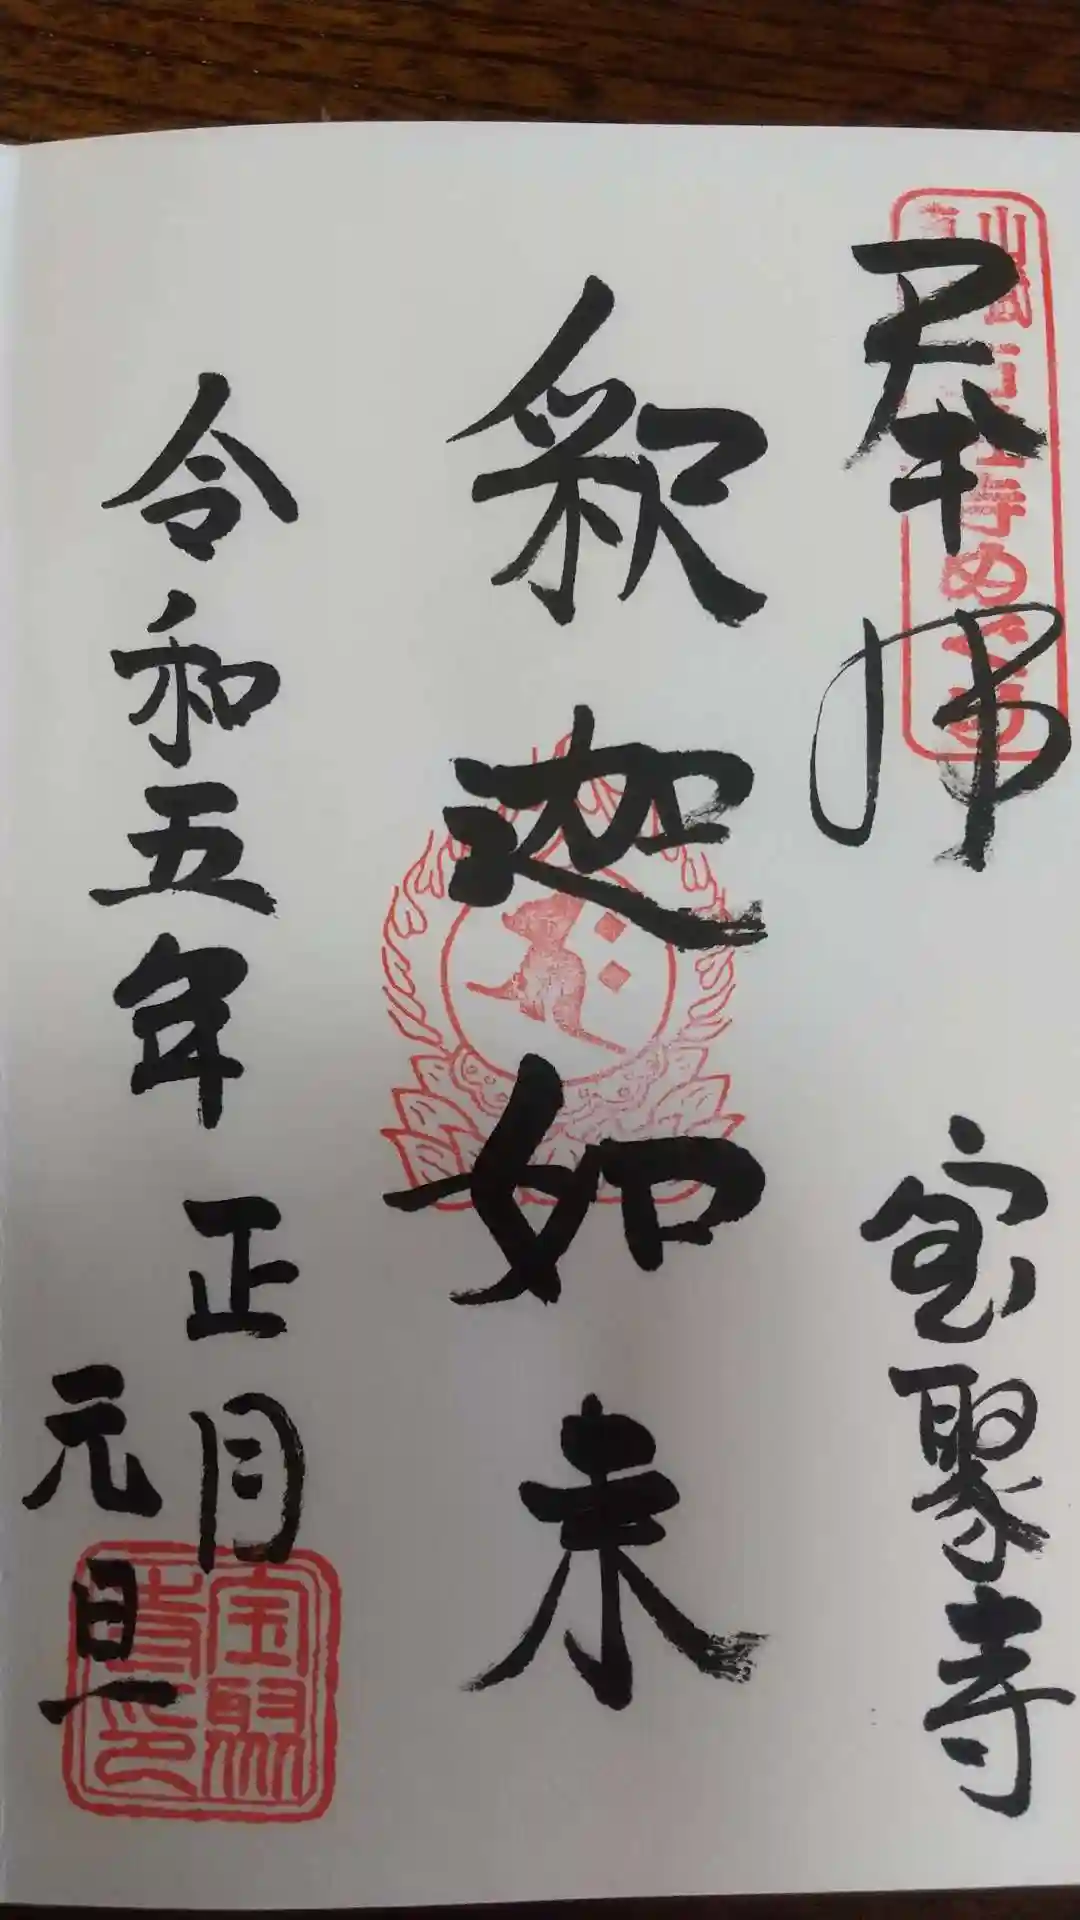 奉拝
宝聚寺
釈迦如来
令和五年
正月
元旦
宝聚
寺印